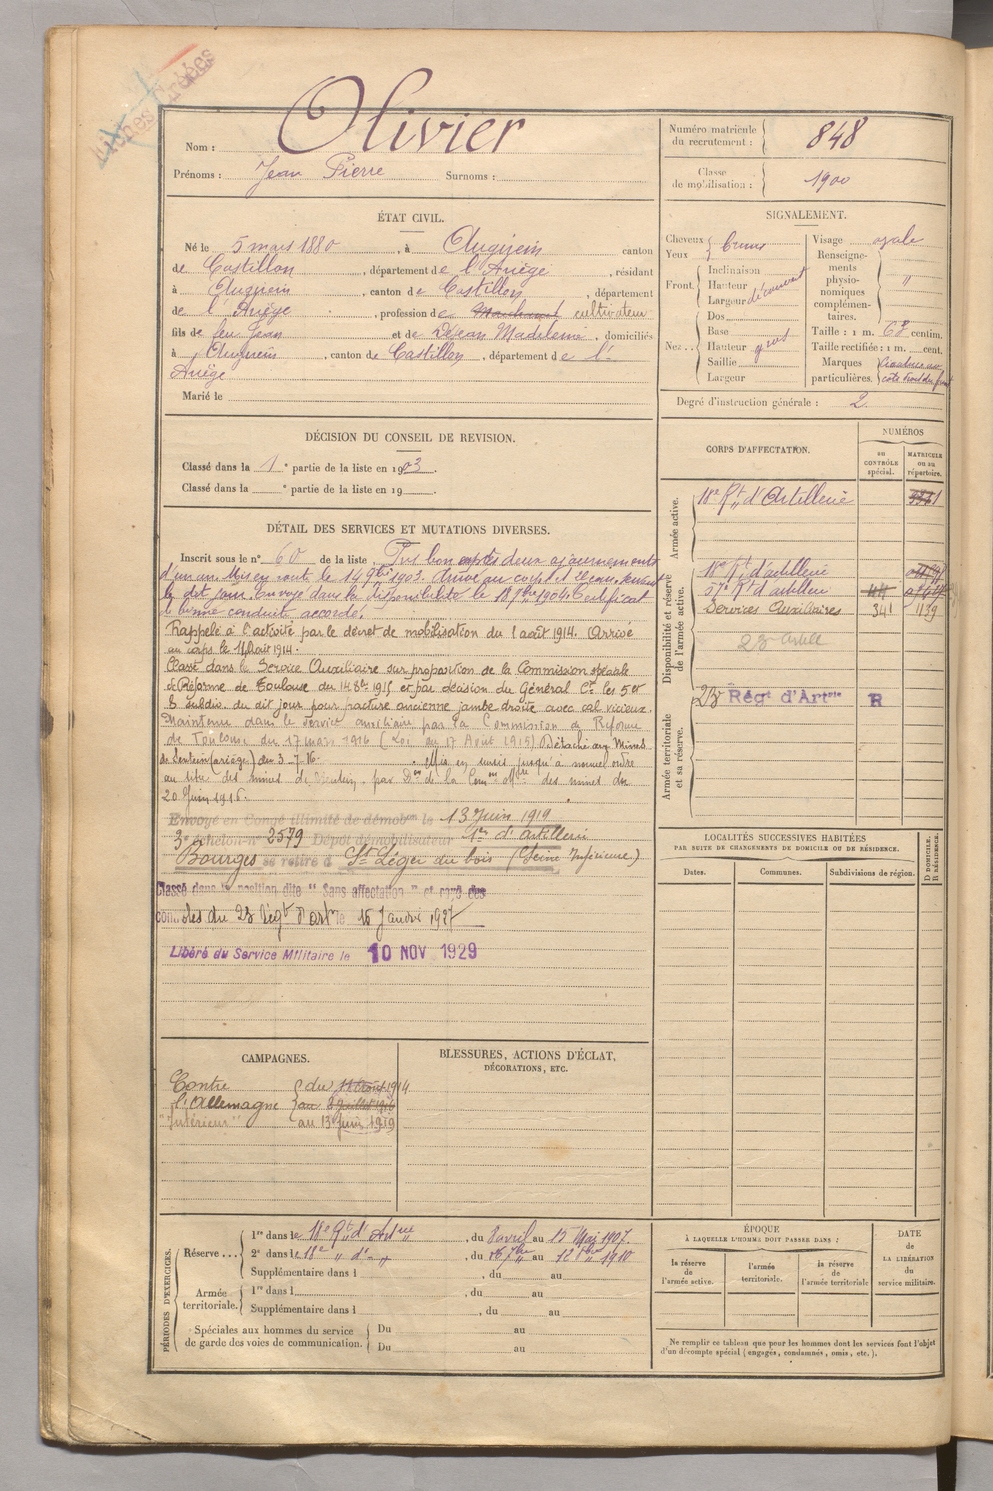 Fiches Créées
Olivier
Nom :
Prénoms : Jean Pierre Surnoms :
Numéro matricule du recrutement : 848
Classe de mobilisation : 1900
ÉTAT CIVIL.
Né le 5 mars 1880, à Augirein canton
de Castillon, département de l'Ariège, résidant
à Augirein, canton de Castillon, département
de l'Ariège, profession de Marchand cultivateur
fils de feu Jean et de Dejean Madeleine, domiciliés
à Augirein, canton de Castillon, département de l'
Ariège
Marié le
SIGNALEMENT.
Cheveux bruns
Yeux
Front. Inclinaison
Hauteur
Largeur découvert
Nez.. Dos
Base
Hauteur gros
Saillie
Largeur
Visage ovale
Renseignements physionomiques complémentaires. "
Taille : 1 m. 68 centim.
Taille rectifiée : 1 m. cent.
Marques particulières. Cicatrice au
côté droit du front
Degré d'instruction générale : 2
DÉCISION DU CONSEIL DE REVISION.
Classé dans la 1e partie de la liste en 1903.
Classé dans la e partie de la liste en 19
DÉTAIL DES SERVICES ET MUTATIONS DIVERSES.
Inscrit sous le n° 60 de la liste. Pris bon après deux ajournements
d'un an. Mis en route le 14 9bre 1903. Arrivé au corps et
le dit jour. Envoyé dans la disponibilité le 18 9bre 1904. Certificat
de bonne conduite accordé.
Rappelé à l'activité par le décret de mobilisation du 1 août 1914. Arrivé
au corps le 11 Août 1914.
Classé dans le Service Auxiliaire sur proposition de la Commission spéciale
de Réforme de Toulouse du 14 8bre 1915 et par décision du Général Ct les 5 et
6 subdiv. du dit jour pour fracture ancienne jambe droite avec cal vicieux.
Maintenu dans le service auxiliaire par la Commission de Réforme
de Toulouse du 17 mars 1916 (Loi du 17 Août 1915) Détaché aux Mines
de Sentein (ariège) du 3-7-16. Mis en sursis jusqu'à nouvel ordre
au titre des mines de Sentein par Don de la Comon des mines du
20 Juin 1916.
Envoyé en Congé illimité de démobon le 13 Juin 1919
3e échelon n° 2579 Dépôt démobilisateur 1er d'artillerie
Bourges se retire à St Léger du bois (Seine Inférieure)
Classé dans la position dite "Sans affectation" et rayé des
contrôles du 23 Régt d'art le 15 Janvr 1927
Libéré du Service Militaire le 10 NOV 1929
CORPS D'AFFECTATION.
NUMÉROS
au CONTRÔLE spécial.
MATRICULE ou au répertoire.
Armée active.
18e Rt d'Artillerie
Disponibilité et réserve de l'armée active.
18e Rt d'artillerie
57e Rt d'artillerie
Services Auxiliaires 341 1139
23 Artill
Armée territoriale et sa réserve.
23 Régt d'Artrie R
LOCALITÉS SUCCESSIVES HABITÉES
PAR SUITE DE CHANGEMENTS DE DOMICILE OU DE RÉSIDENCE.
Dates. Communes. Subdivisions de région. D DOMICILE. R RÉSIDENCE.
CAMPAGNES.
Contre du 11 Août 1914
l'Allemagne au 2 Juillet 1916
"Intérieur" au 13 Juin 1919
BLESSURES, ACTIONS D'ÉCLAT,
DÉCORATIONS, ETC.
PÉRIODES D'EXERCICES.
Réserve... 1re dans le 18e Rt d'Artrie, du 8 avril au 15 Mai 1907.
2e dans le 18e " d° ", du 7bre au 1910
Supplémentaire dans l , du au
Armée territoriale. 1re dans l , du au
Supplémentaire dans l , du au
Spéciales aux hommes du service de garde des voies de communication. Du au
Du au
ÉPOQUE
À LAQUELLE L'HOMME DOIT PASSER DANS :
la réserve de l'armée active.
l'armée territoriale.
la réserve de l'armée territoriale
DATE de LA LIBÉRATION du service militaire.
Ne remplir ce tableau que pour les hommes dont les services font l'objet
d'un décompte spécial (engagés, condamnés, omis, etc.).